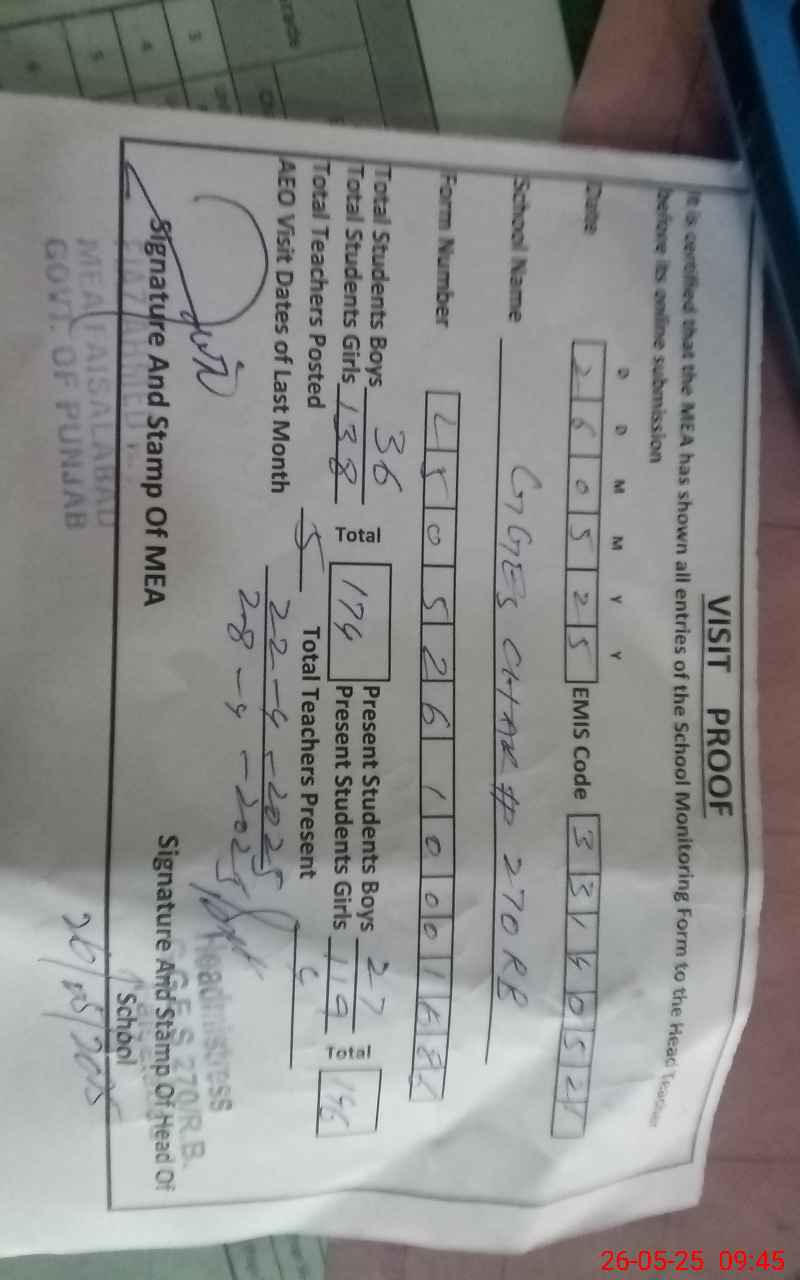 VISIT PROOF
It is certified that the MEA has shown all entries of the School Monitoring Form to the Head Teacher
before its online submission
D D M M Y Y
Date 2 6 0 5 2 5 EMIS Code 3 3 1 4 0 5 2 1
School Name GGES CHAK # 270 RB
Form Number L 5 0 5 2 6 1 0 0 0 1
Total Students Boys 36 Present Students Boys 27
Total Students Girls 138 Total 174 Present Students Girls 119 146
Total Teachers Posted 5 Total Teachers Present 4
AEO Visit Dates of Last Month 22-4-2025
28-4-2025
Headmistress
270/R.B.
Signature And Stamp Of MEA Signature And Stamp Of Head Of
School
MEA FAISALABAD
GOVT. OF PUNJAB
26/05/2025
26-05-25 09:45